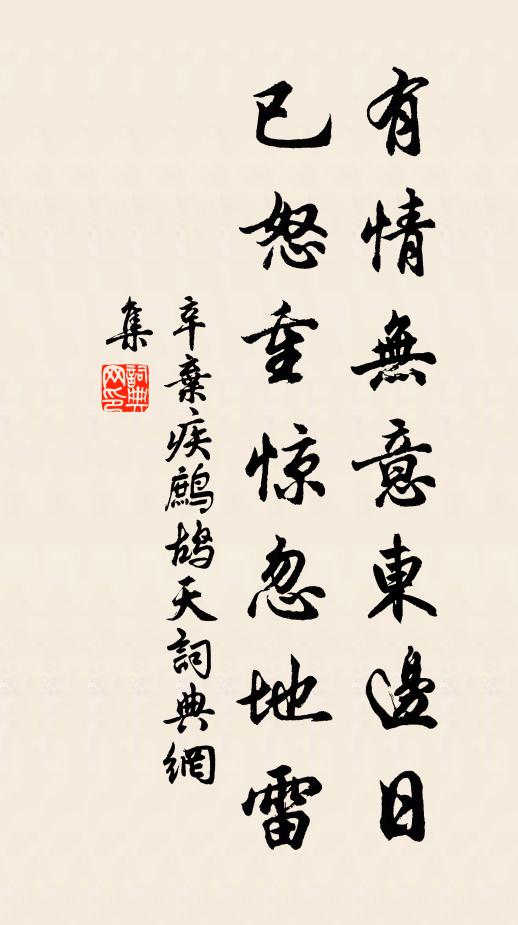 有情無意東邊日
已怒重惊忽地雷
辛棄疾鷓鴣天詞典網
集
詞典网印